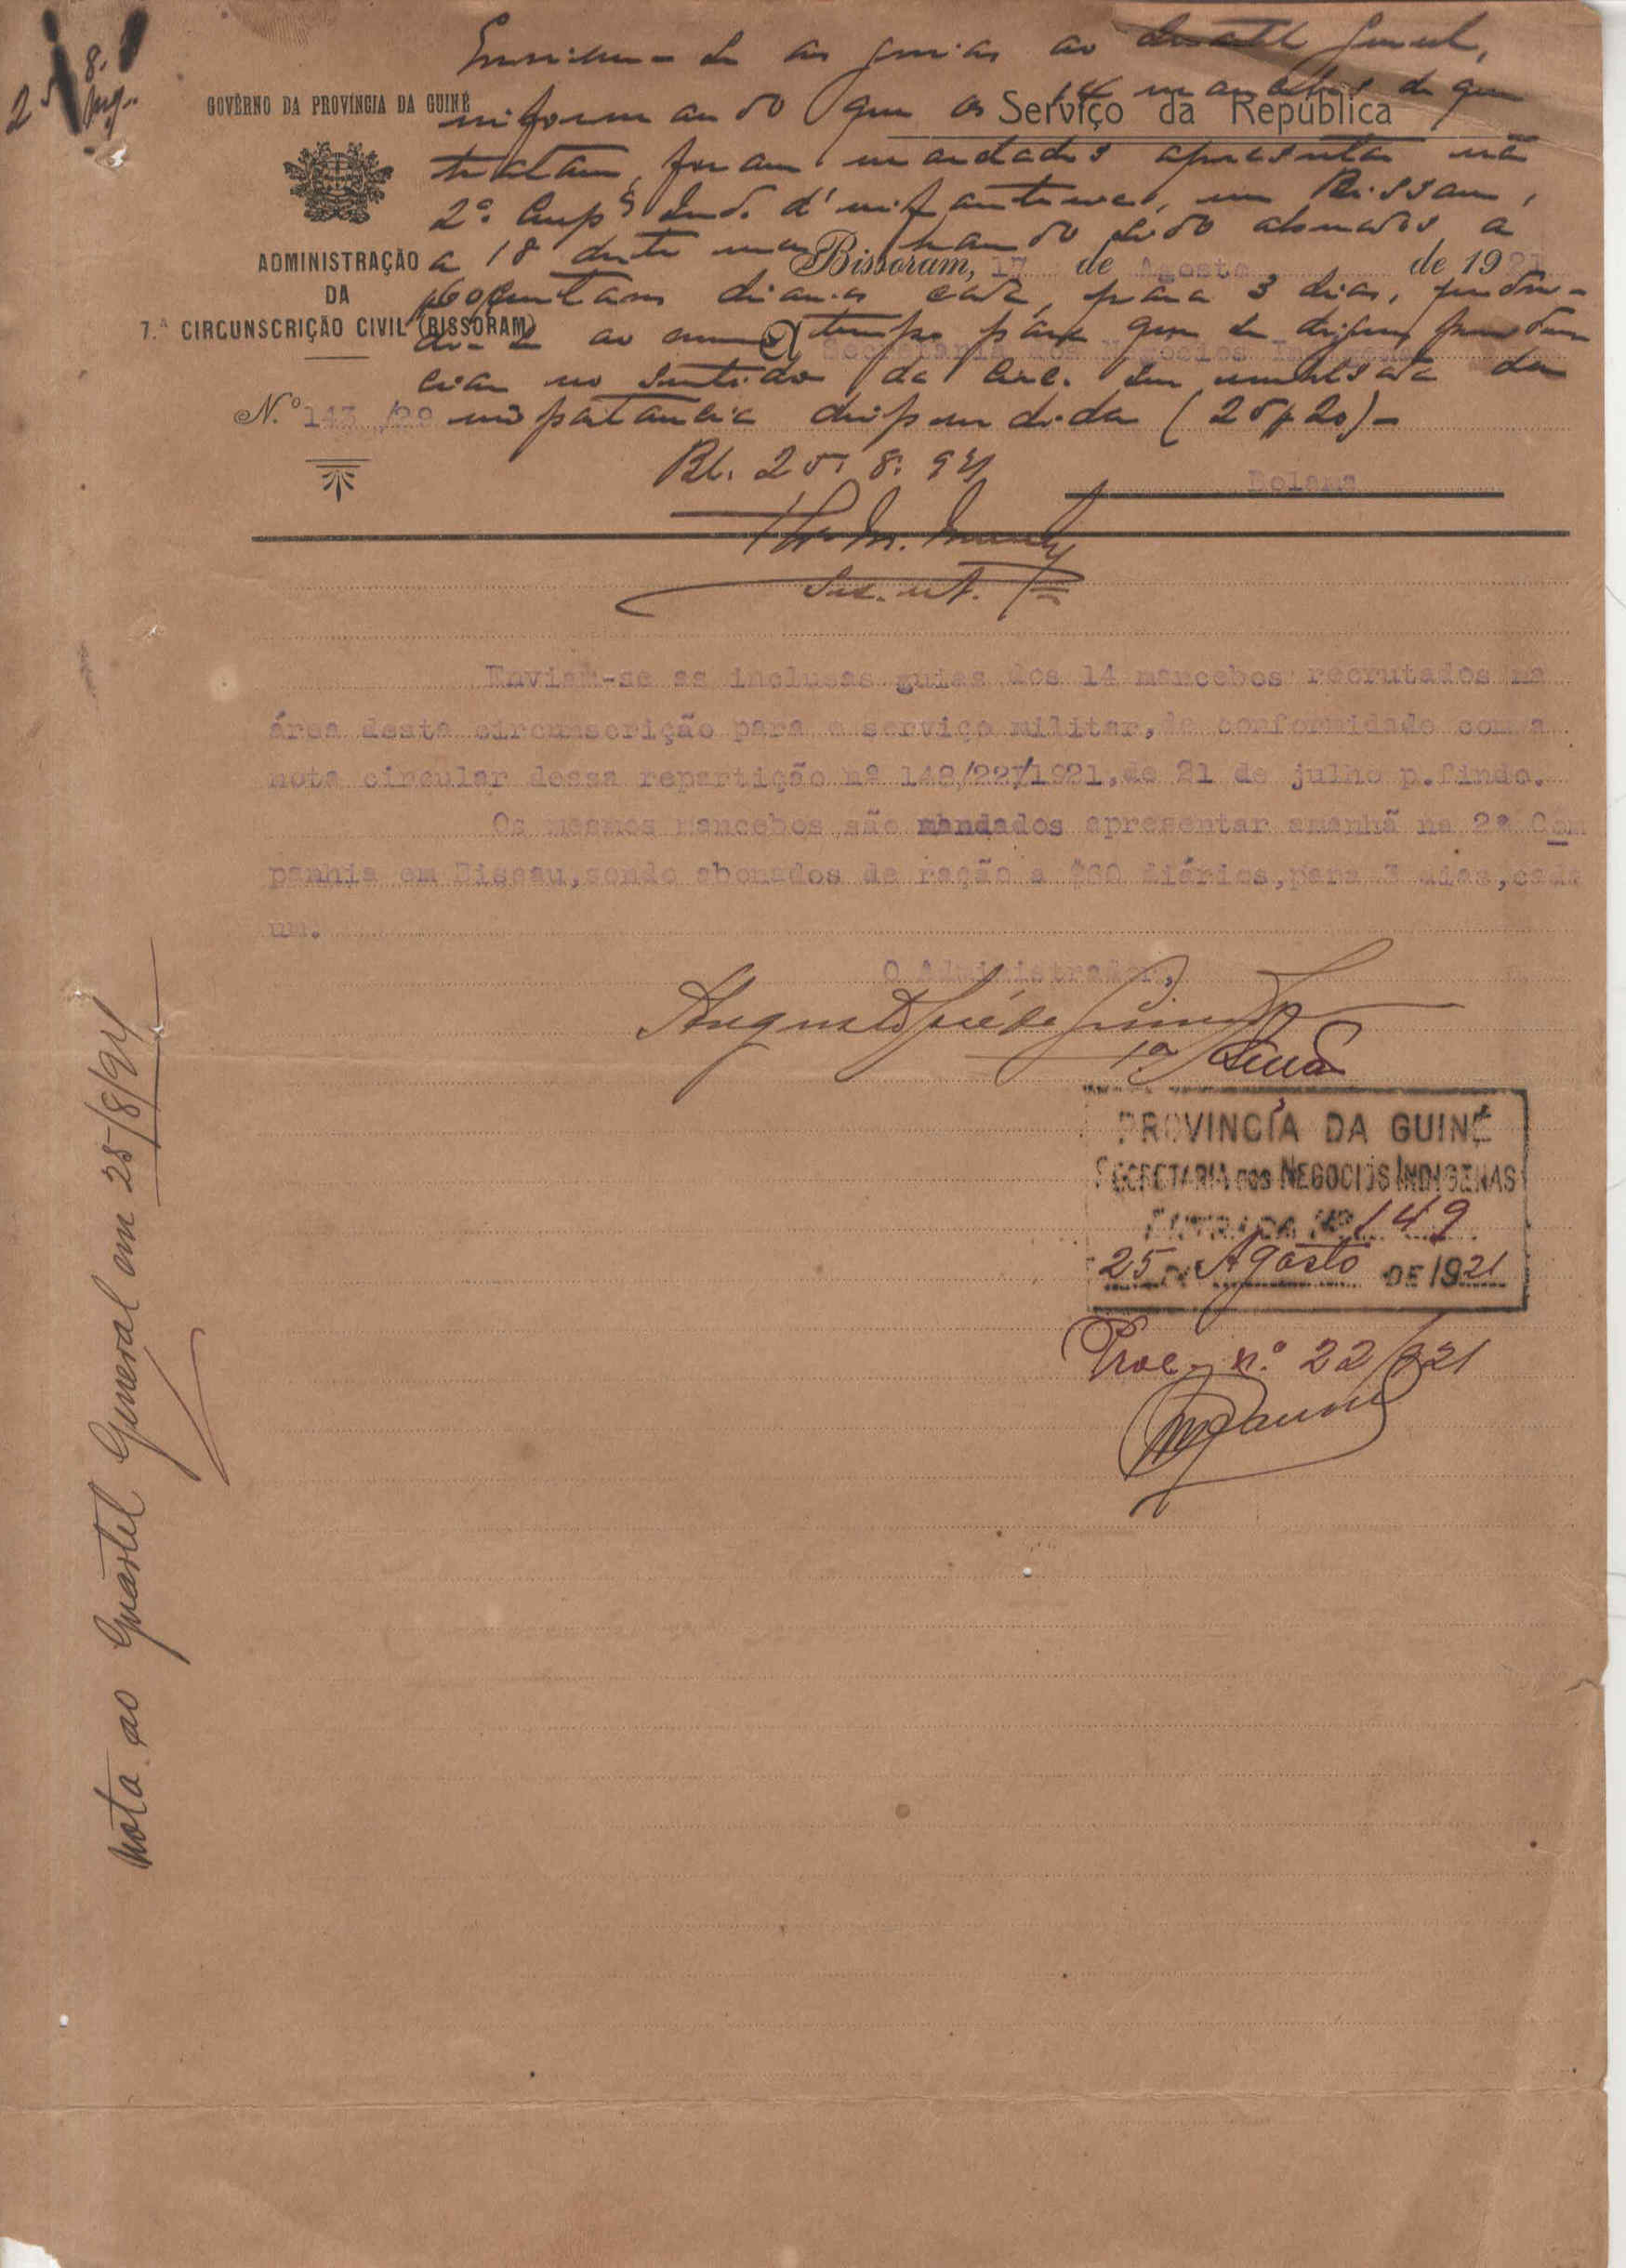 25
8.
GOVÊRNO DA PROVÍNCIA DA GUINÉ
as guias ao Quartel General,
informando que os 14 mancebos de que
Serviço da República
tratam, foram mandados apresentar na
2ª Compª Ind. d'infanteria, em Bissau,
a 18 deste mez, sendo abonados a
ADMINISTRAÇÃO
DA
7.ª CIRCUNSCRIÇÃO CIVIL (BISSORAM)
Bissoram, 17 de Agosto de 1921
$60 diarios cada, para 3 dias,
ao mesmo tempo para que se
Á Secretaria dos Negocios Indigenas
no sentido da Circ. ser
N.º 143 /29
importancia dispendida (25$20)-
Bl. 25. 8. 921
Bolama
Enviam-se as inclusas guias dos 14 mancebos recrutados na
área desta circunscrição para o serviço militar, de conformidade com a
nota circular dessa repartição nº 148/227/1921, de 21 de julho p. findo.
Os mesmos mancebos são mandados apresentar amanhã na 2ª Com
panhia em Bissau, sendo abonados de ração a $60 diários, para 3 dias, cada
um.
O Administrador,
Augusto José de
PROVINCIA DA GUINÉ
SECRETARIA DOS NEGOCIOS INDIGENAS
ENTRADA Nº 149
25 DE Agosto DE 1921
Proc. n.º 22/921
Nota ao Quartel General em 25/8/921